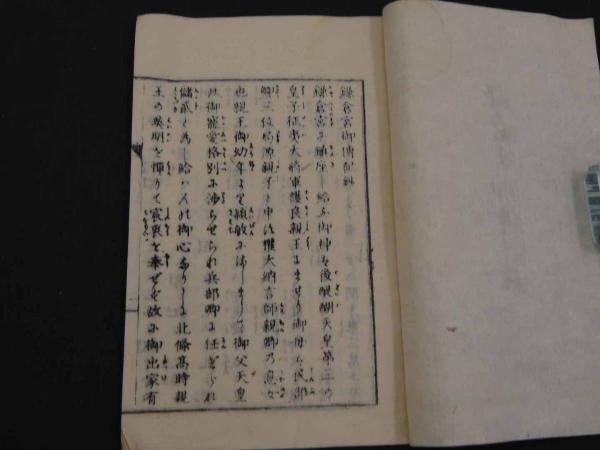 鎌倉宮御傳記
鎌倉宮に鎮座し給ふ御神は後醍醐天皇第三の
皇子征夷大将軍護良親王にませり御母は民部
卿三位局源親子と申し大納言師親卿乃息女
也親王御幼年より穎敏にましまして御父天皇
の御寵愛格別に渉らせられ兵部卿に任ぜられ
儲貳と為し給はんの御心ありしに北條髙時親
王の英明を憚りて宸衷を奉ぜず故に御出家有